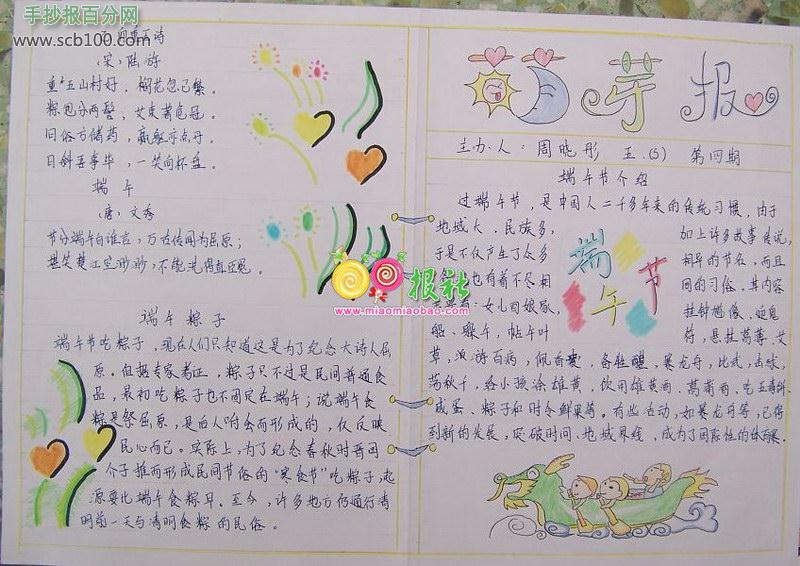 手抄报百分网
www.scb100.com
(宋)陆游
重五山村好，榴花忽已繁。
粽包分两髻，艾束著危冠。
旧俗方储药，羸躯亦点丹。
日斜吾事毕，一笑向杯盘。
端 午
(唐)文秀
节分端午自谁言，万古传闻为屈原；
堪笑楚江空渺渺，不能洗得直臣冤。
端午 粽子
端午节吃粽子，现在人们只知道这是为了纪念大诗人屈
原。但据专家考证，粽子只不过是民间普通食
品，最初吃粽子也不固定在端午；说端午食
粽是祭屈原，是后人附会而形成的，仅反映
民心而已。实际上，为了纪念春秋时晋国
介子推而形成民间节俗的“寒食节”吃粽子，起
源要比端午食粽早。至今，许多地方仍通行清
明前一天与清明食粽的民俗。
报社
www.miaomiaobao.com
萌芽报
主办人：周晓彤 五.(5) 第四期
端午节介绍
过端午节，是中国人二千多年来的传统习惯，由于
地域大、民族多，
加上许多故事传说，
于是不仅产生了众多
相异的节名，而且
也有着不尽相
同的习俗。其内容
女儿回娘家，
挂钟馗像、迎鬼
船、躲午，帖午叶
符，悬挂菖蒲、艾
端午节
草，游百病，佩香囊，备牲醴，赛龙舟，比武，击球，
荡秋千，给小孩涂雄黄，饮用雄黄酒、菖蒲酒，吃五毒饼、
咸蛋、粽子和时令鲜果等。有些活动，如赛龙舟等，已得
到新的发展，突破时间、地域界线，成为了国际性的体育赛